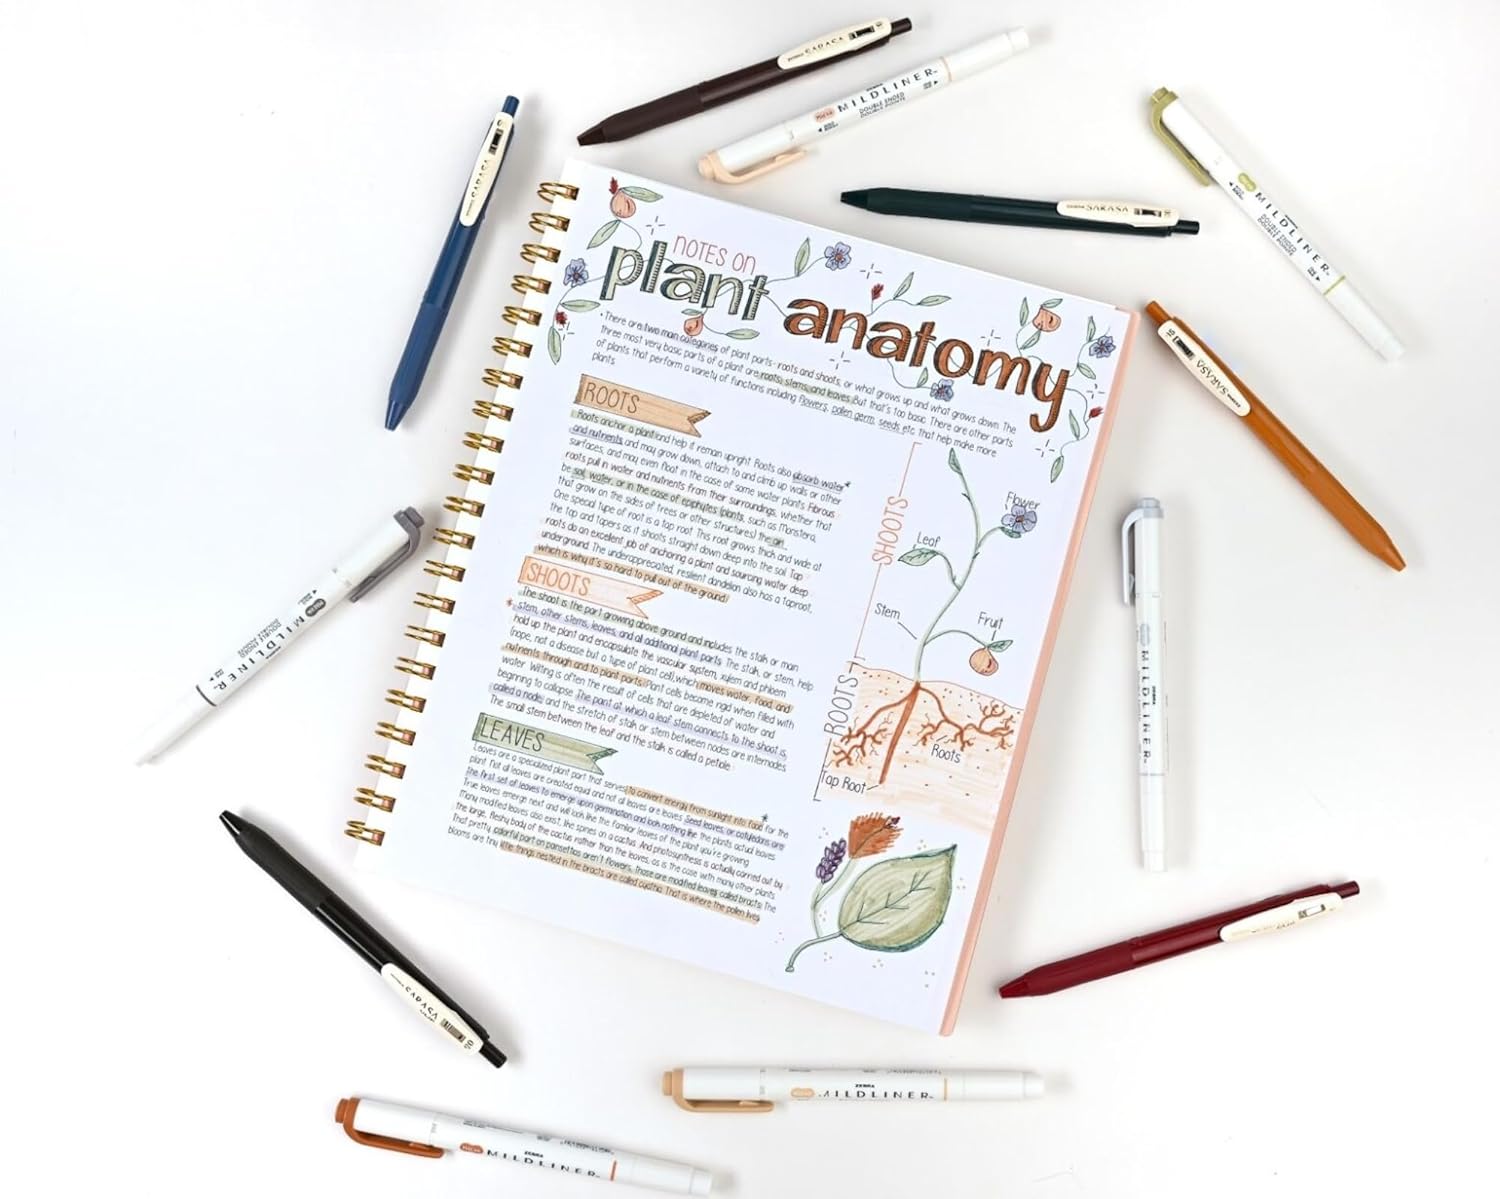 NOTES ON
plant anatomy
• There are two main categories of plant parts- roots and shoots, or what grows up and what grows down. The
three most very basic parts of a plant are roots, stems, and leaves. But that's too basic. There are other parts
of plants that perform a variety of functions including flowers, pollen, germ, seeds etc. that help make more
plants.
ROOTS
Roots anchor a plant and help it remain upright. Roots also absorb water
and nutrients and may grow down, attach to and climb up walls or other
surfaces, and may even float in the case of some water plants. Fibrous
roots pull in water and nutrients from their surroundings, whether that
be soil, water, or in the case of epiphytes (plants, such as Monstera,
that grow on the sides of trees or other structures) the air.
One special type of root is a tap root. This root grows thick and wide at
the top and tapers as it shoots straight down deep into the soil. Tap
roots do an excellent job of anchoring a plant and sourcing water deep
underground. The underappreciated, resilient dandelion also has a taproot,
which is why it's so hard to pull out of the ground!
SHOOTS
The shoot is the part growing above ground and includes the stalk or main
* stem, other stems, leaves, and all additional plant parts. The stalk, or stem, help
hold up the plant and encapsulate the vascular system, xylem and phloem
(nope, not a disease but a type of plant cell), which moves water, food, and
nutrients through and to plant parts. Plant cells become rigid when filled with
water. Wilting is often the result of cells that are depleted of water and
beginning to collapse. The point at which a leaf stem connects to the shoot is
called a node, and the stretch of stalk or stem between nodes are internodes.
The small stem between the leaf and the stalk is called a petiole.
LEAVES
Leaves are a specialized plant part that serves to convert energy from sunlight into food for the
plant. Not all leaves are created equal and not all leaves are leaves. Seed leaves, or cotyledons are
the first set of leaves to emerge upon germination and look nothing like the plants actual leaves.
True leaves emerge next and will look like the familiar leaves of the plant you're growing.
Many modified leaves also exist, like spines on a cactus. And photosynthesis is actually carried out by
the large, fleshy body of the cactus rather than the leaves, as is the case with many other plants.
That pretty colorful part on poinsettias aren't flowers, those are modified leaves called bracts. The
blooms are tiny little things nested in the bracts are called cyathia. That is where the pollen lives.
SHOOTS
Flower
Leaf
Stem
Fruit
ROOTS
Roots
Tap Root
ZEBRA SARASA
ZEBRA MILDLINER
DOUBLE ENDED
DOUBLE POINTE
SARASA
ZEBRA SARASA
MILDLINER
DOUBLE ENDED
DOUBLE POINTE
SARASA
MILDLINER
DOUBLE ENDED
ZEBRA
MILDLINER
SARASA
05
ZEBRA
MILDLINER
ZEBRA
MILDLINER